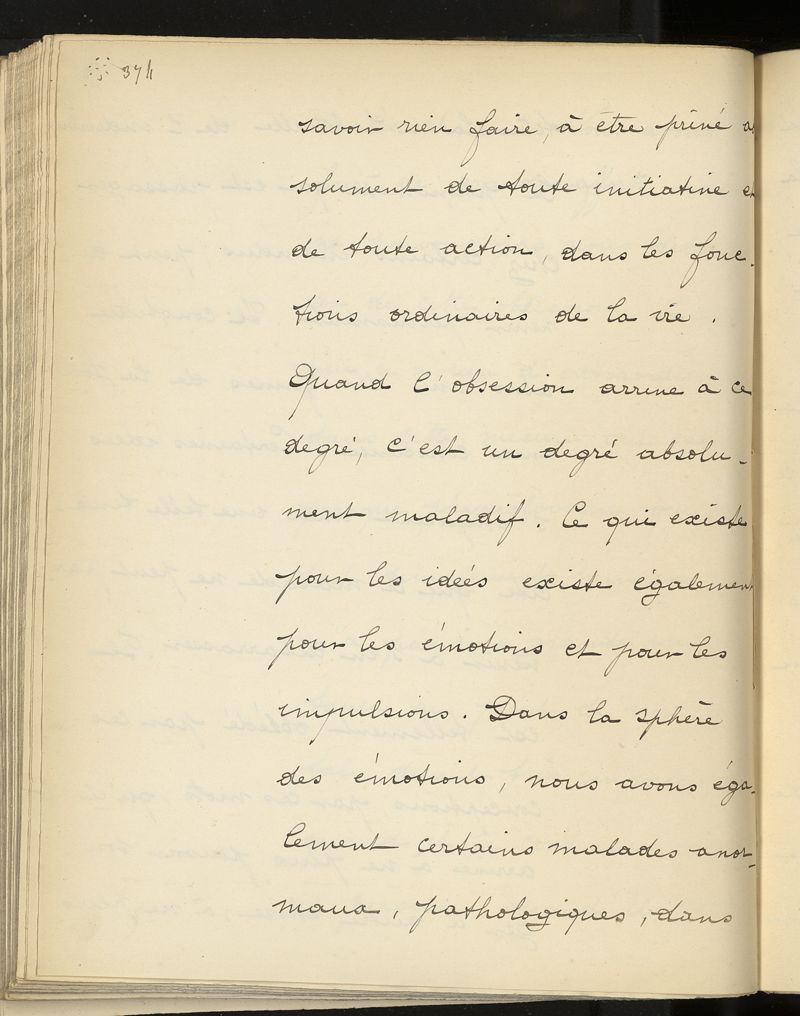 374
savoir rien faire, à être privé a
solument de toute initiative e
de toute action, dans les fonc-
tions ordinaires de la vie.
Quand l'obsession arrive à ce
degré, c'est un degré absolu-
ment maladif. Ce qui existe
pour les ideés existe égalemen
pour les émotions et pour les
impulsions. Dans la sphère
des émotions, nous avons éga-
lement certains malades anor-
maux, pathologiques, dans